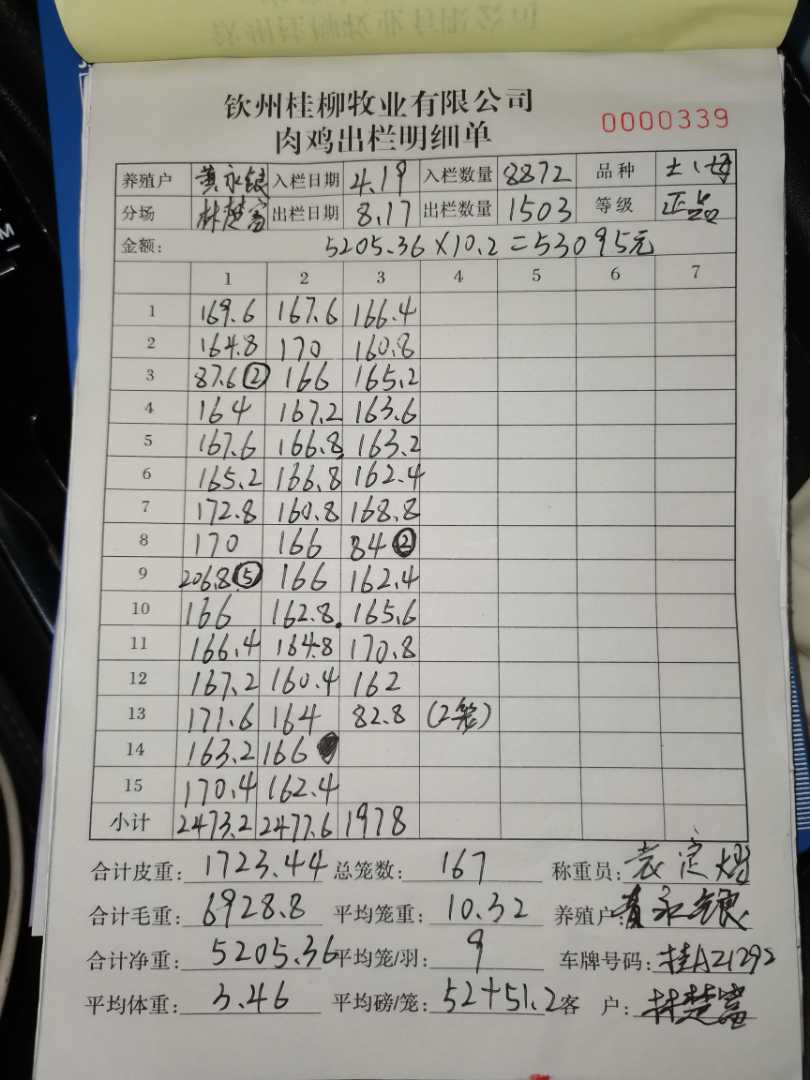 钦州桂柳牧业有限公司
肉鸡出栏明细单
0000339
养殖户 黄永银 入栏日期 4.19 入栏数量 8872 品种 土
分场 林楚富 出栏日期 8.17 出栏数量 1503 等级 正品
金额: 5205.36×10.2=53095元
1 2 3 4 5 6 7
1 169.6 167.6 166.4
2 164.8 170 160.8
3 87.6② 166 165.2
4 164 167.2 163.6
5 167.6 166.8 163.2
6 165.2 166.8 162.4
7 172.8 160.8 168.8
8 170 166 84②
9 206.8⑤ 166 162.4
10 166 162.8 165.6
11 166.4 164.8 170.8
12 167.2 160.4 162
13 171.6 164 82.8 (2笼)
14 163.2 166
15 170.4 162.4
小计 2473.2 2477.6 1978
合计皮重: 1723.44 总笼数: 167 称重员: 袁定
合计毛重: 6928.8 平均笼重: 10.32 养殖户: 黄永银
合计净重: 5205.36 平均笼/羽: 9 车牌号码: 桂A21292
平均体重: 3.46 平均磅/笼: 52+51.2 客 户: 林楚富